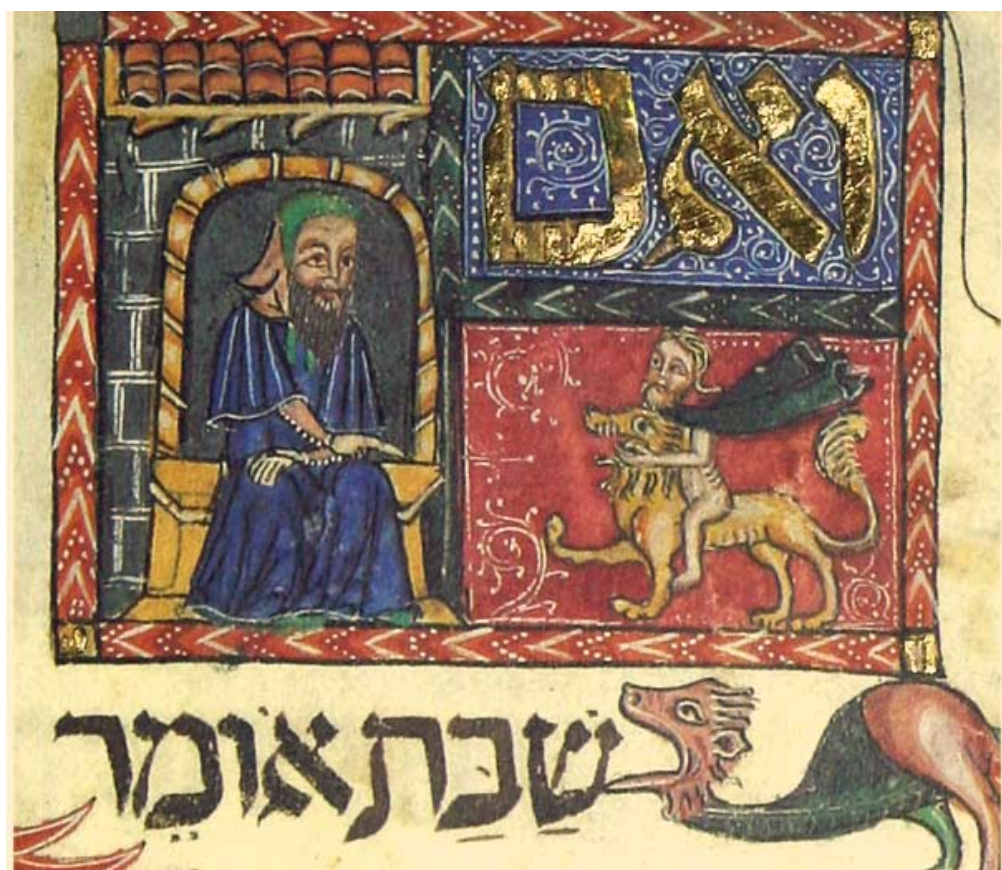 ואם
שַׁבַּת אוֹמֵר